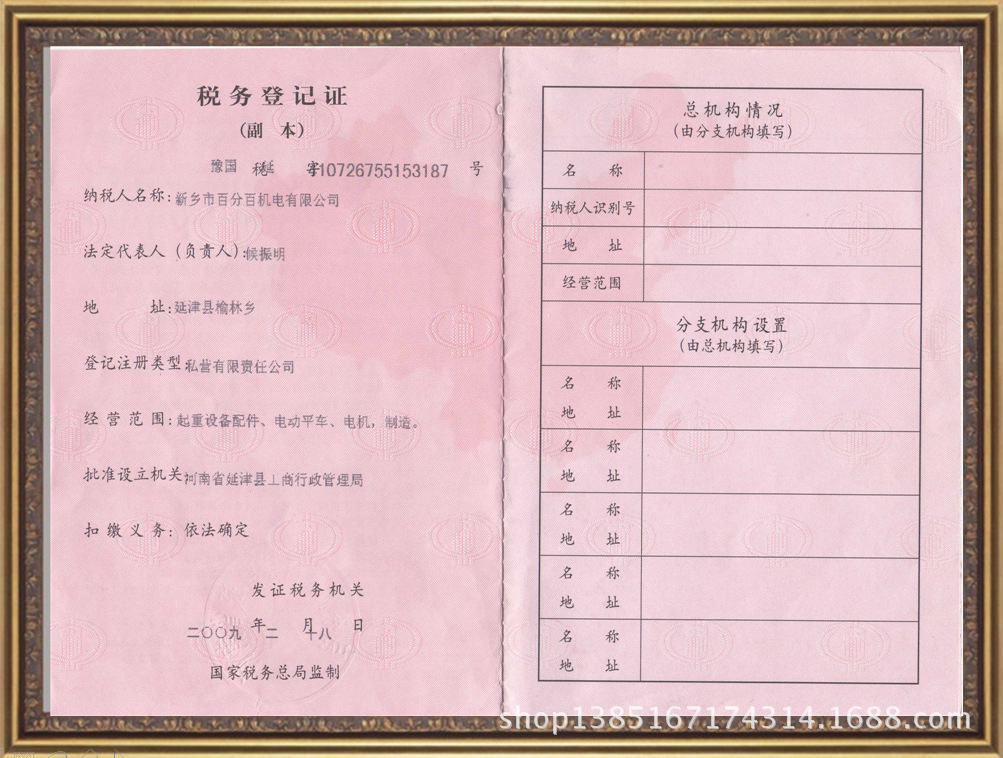 税务登记证
（副 本）
豫国 税 延 字 410726755153187 号
纳税人名称：新乡市百分百机电有限公司
法定代表人（负责人）：候振明
地 址：延津县榆林乡
登记注册类型：私营有限责任公司
经营范围：起重设备配件、电动平车、电机，制造。
批准设立机关：河南省延津县工商行政管理局
扣缴义务：依法确定
发证税务机关
二〇〇九 年 二 月 十八 日
国家税务总局监制
总机构情况
（由分支机构填写）
名 称
纳税人识别号
地 址
经营范围
分支机构设置
（由总机构填写）
名 称
地 址
名 称
地 址
名 称
地 址
名 称
地 址
名 称
地 址
shop1385167174314.1688.com